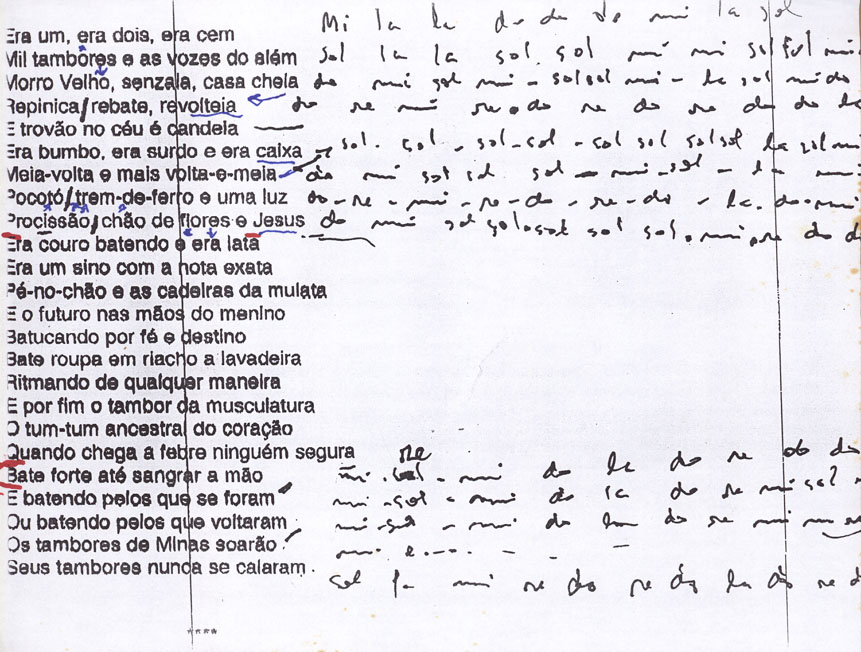 Mi la la do do do mi la sol
Era um, era dois, era cem
Mil tambores e as vozes do além sol la la sol sol mi mi sol mi
Morro Velho, senzala, casa cheia do mi sol mi - sol sol mi - la sol mi do
Repinica/rebate, revolteia do re mi re do re do re do do la
E trovão no céu é candela
Era bumbo, era surdo e era caixa - sol. sol - sol-sol - sol sol sol sol la sol mi
Meia-volta e mais volta-e-meia do mi sol sol sol - mi - sol - la mi
Pocotó/trem-de-ferro e uma luz do - re - mi - re - do - re - do - la. do - mi
Procissão/chão de flores e Jesus do mi sol sol sol sol sol. mi re do
Era couro batendo e era lata
Era um sino com a nota exata
Pé-no-chão e as cadeiras da mulata
E o futuro nas mãos do menino
Batucando por fé e destino
Bate roupa em riacho a lavadeira
Ritmando de qualquer maneira
E por fim o tambor da musculatura
O tum-tum ancestral do coração
Quando chega a febre ninguém segura re
Bate forte até sangrar a mão mi - sol - mi do la do re do do
E batendo pelos que se foram mi - sol - mi do la do re mi sol
Ou batendo pelos que voltaram mi - sol - mi do la do re mi
Os tambores de Minas soarão
Seus tambores nunca se calaram. sol fa mi re do re do la do re
****